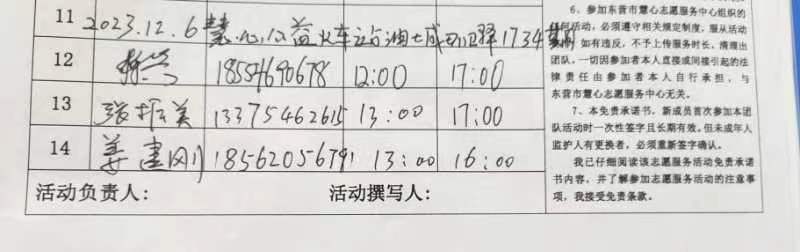 11 2023.12.6 慧心公益火车站油城 1734
12 18554690678 12:00 17:00
13 张振美 13375462615 13:00 17:00
14 姜建刚 18562056791 13:00 16:00
活动负责人： 活动撰写人：
6、参加东营市慧心志愿服务中心组织的
任何活动，必须遵守相关规定制度，服从活动
如有违反，不予上传服务时长，清理出
团队。一切因参加者本人直接或间接引起的法
律责任由参加者本人自行承担，与
东营市慧心志愿服务中心无关。
7、本免责承诺书，新成员首次参加本团
队活动时一次性签字且长期有效。但未成年人
监护人有更换者，必须重新签字确认。
我已仔细阅读该志愿服务活动免责承诺
书内容，并了解参加志愿服务活动的注意事
项，我接受免责条款。